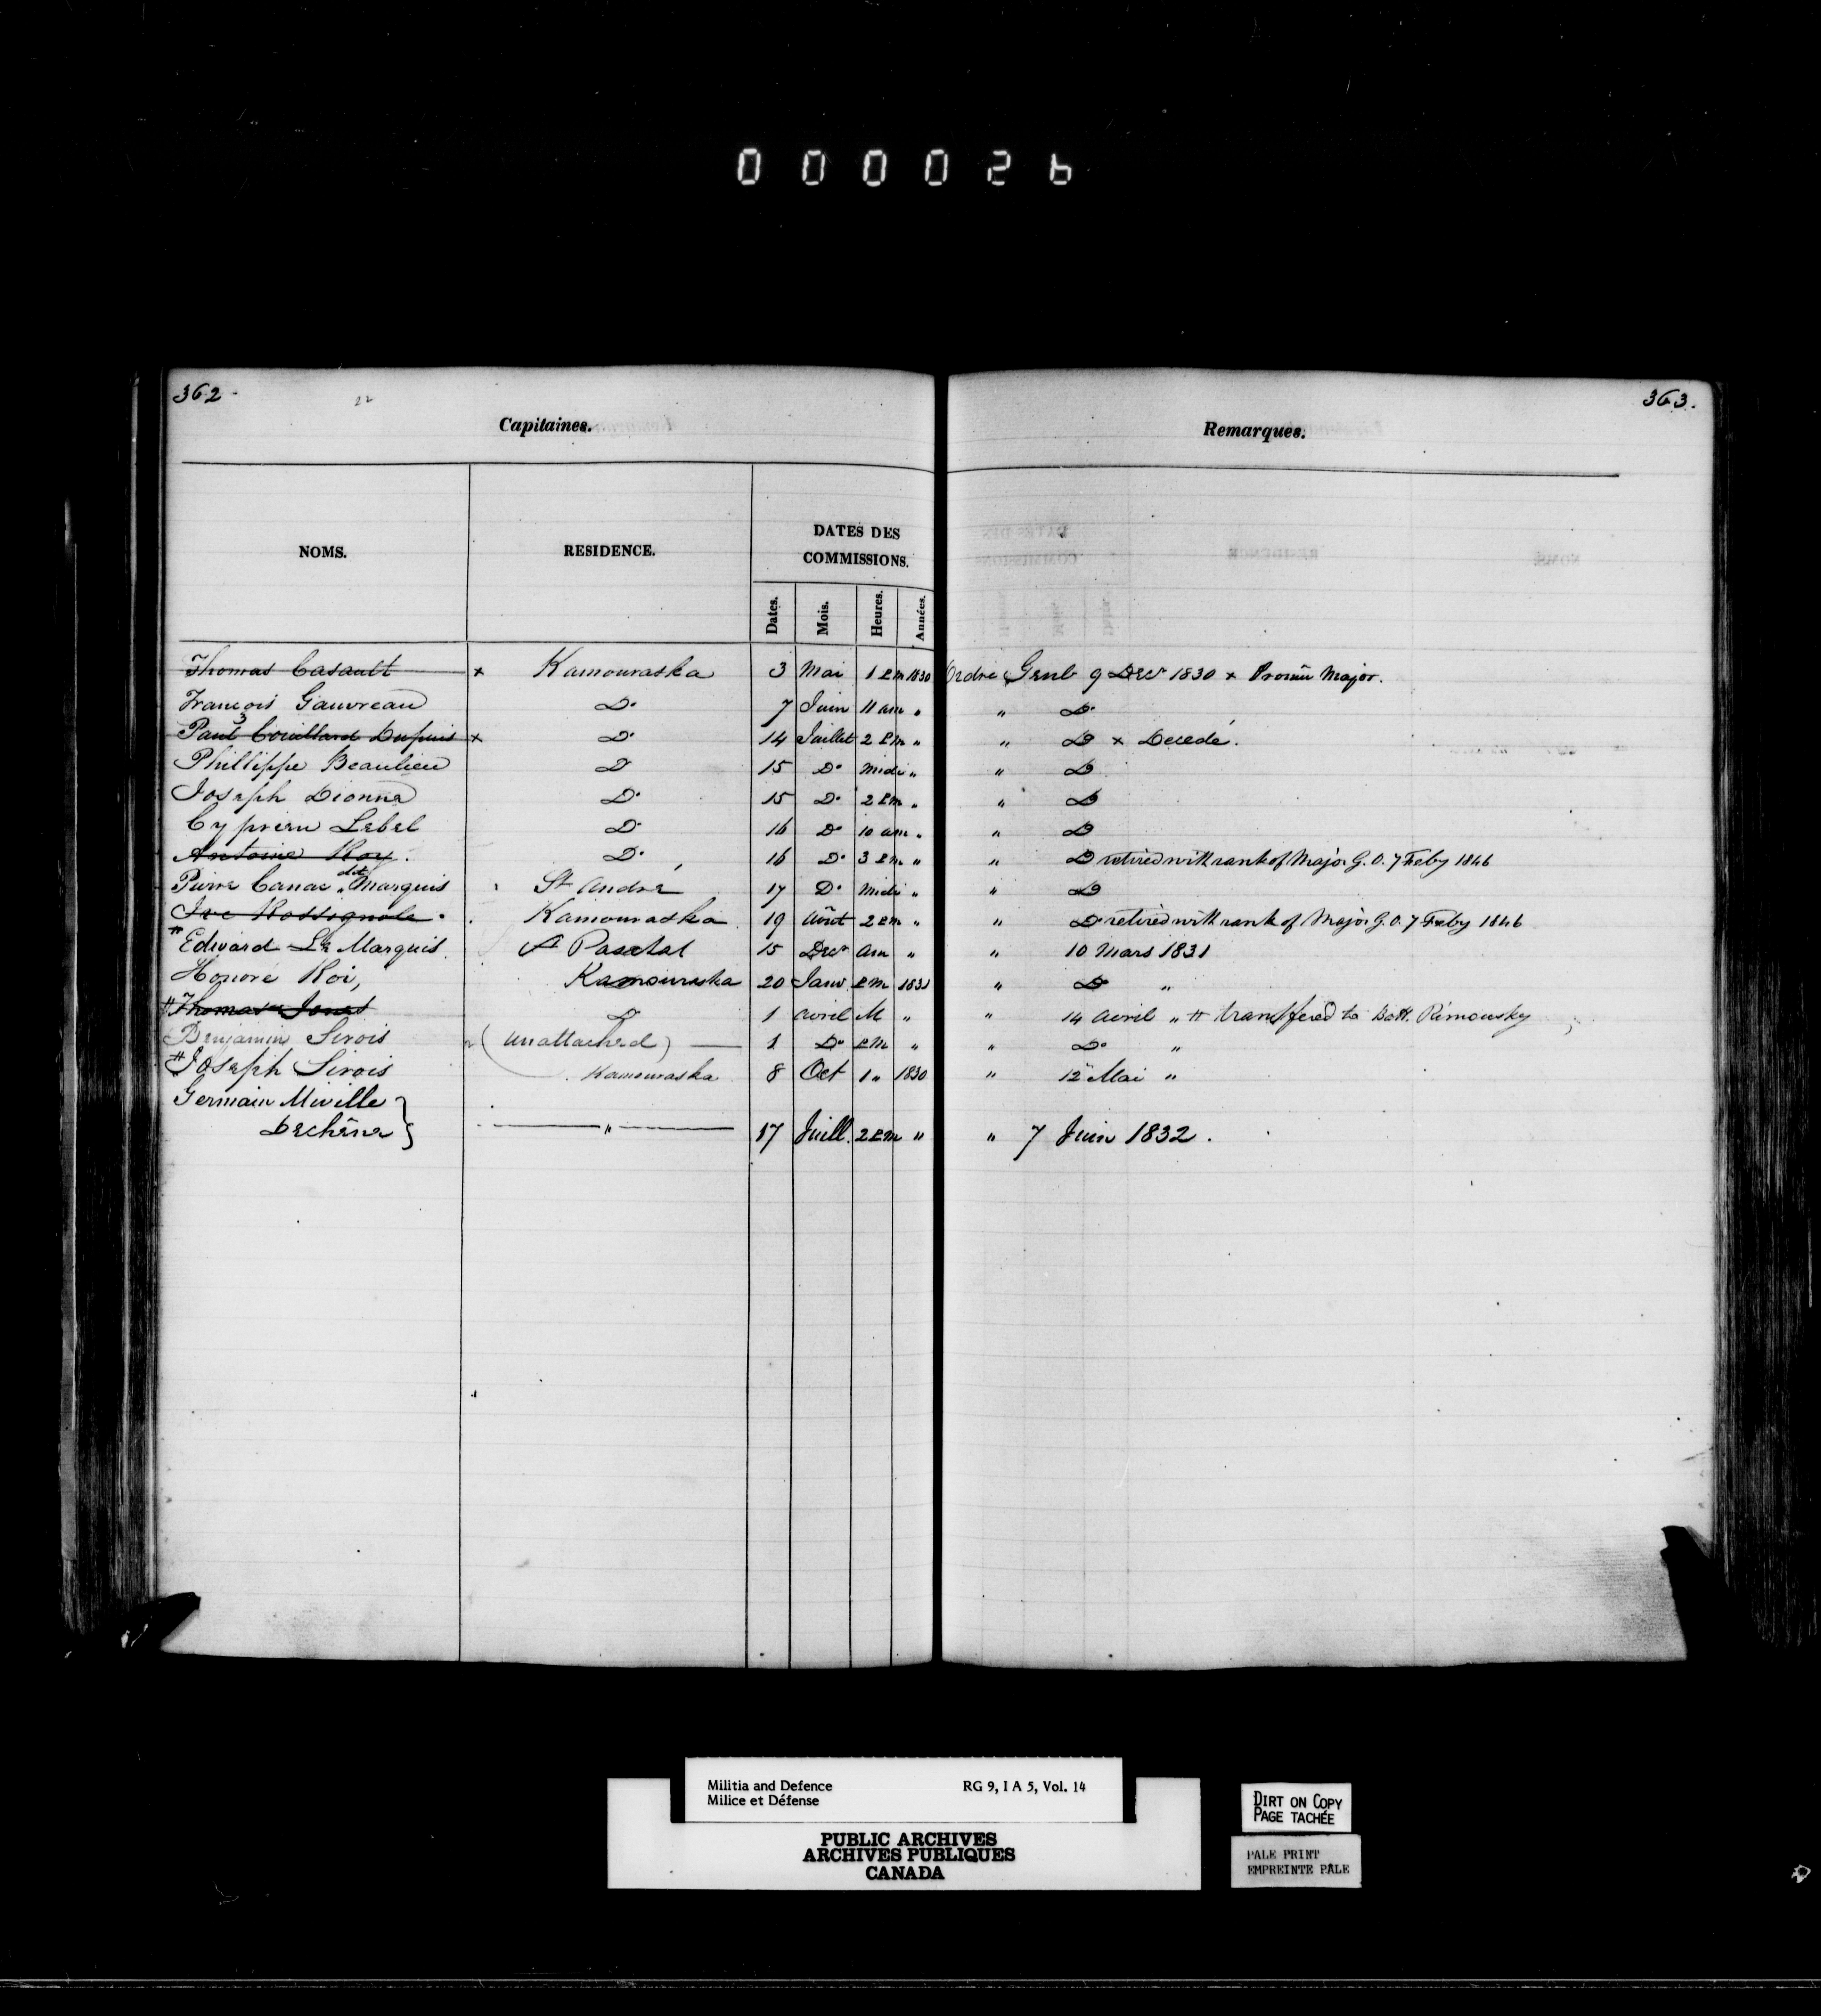 000026
362 -
22
Capitaines.
NOMS. RESIDENCE. DATES DES COMMISSIONS.
Dates. Mois. Heures. Années.
Thomas Casault x Kamouraska 3 Mai 1 PM 1830
François Gauvreau Do 7 Juin 11 am "
Paul Couillard Dupuis x Do 14 Juillet 2 PM "
Phillippe Beaulieu Do 15 Do Midi "
Joseph Dionne Do 15 Do 2 PM "
Cyprien Lebel Do 16 Do 10 am "
Antoine Roy. Do 16 Do 3 PM "
Pierre Canac dit Marquis St André 17 Do Midi "
Ive Rossignole. Kamouraska 19 Août 2 PM "
# Edward Le Marquis. St Paschal 15 Decr am "
Honoré Roi, Kamouraska 20 Janv. PM 1831
# Thomas Jones Do 1 Avril M "
Benjamin Sirois (Unattached) 1 Do PM "
# Joseph Sirois Kamouraska 8 Oct 1 " 1830
Germain Miville }
Dechêne } " 17 Juill. 2 PM "
363.
Remarques.
Ordre Genl 9 Decr 1830 x Promu Major.
" Do
" Do x Decedé.
" Do
" Do
" Do
" Do retired with rank of Major G.O. 7 Feby 1846
" Do
" Do retired with rank of Major G.O. 7 Feby 1846
" 10 Mars 1831
" Do "
" 14 Avril " # transfered to Batt. Rimousky
" Do "
" 12 Mai "
" 7 Juin 1832.
Militia and Defence RG 9, I A 5, Vol. 14
Milice et Défense
PUBLIC ARCHIVES
ARCHIVES PUBLIQUES
CANADA
DIRT ON COPY
PAGE TACHÉE
PALE PRINT
EMPREINTE PÂLE